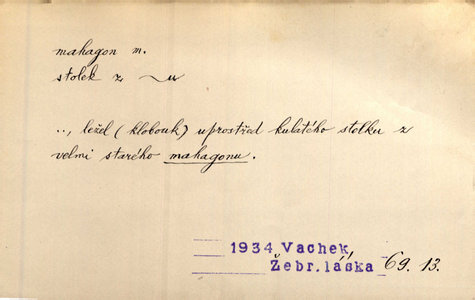 mahagon m.
stolek z ~u
.., ležel (klobouk) uprostřed kulatého stolku z
velmi starého mahagonu.
1934 Vachek,
Žebr.láska 69.13.